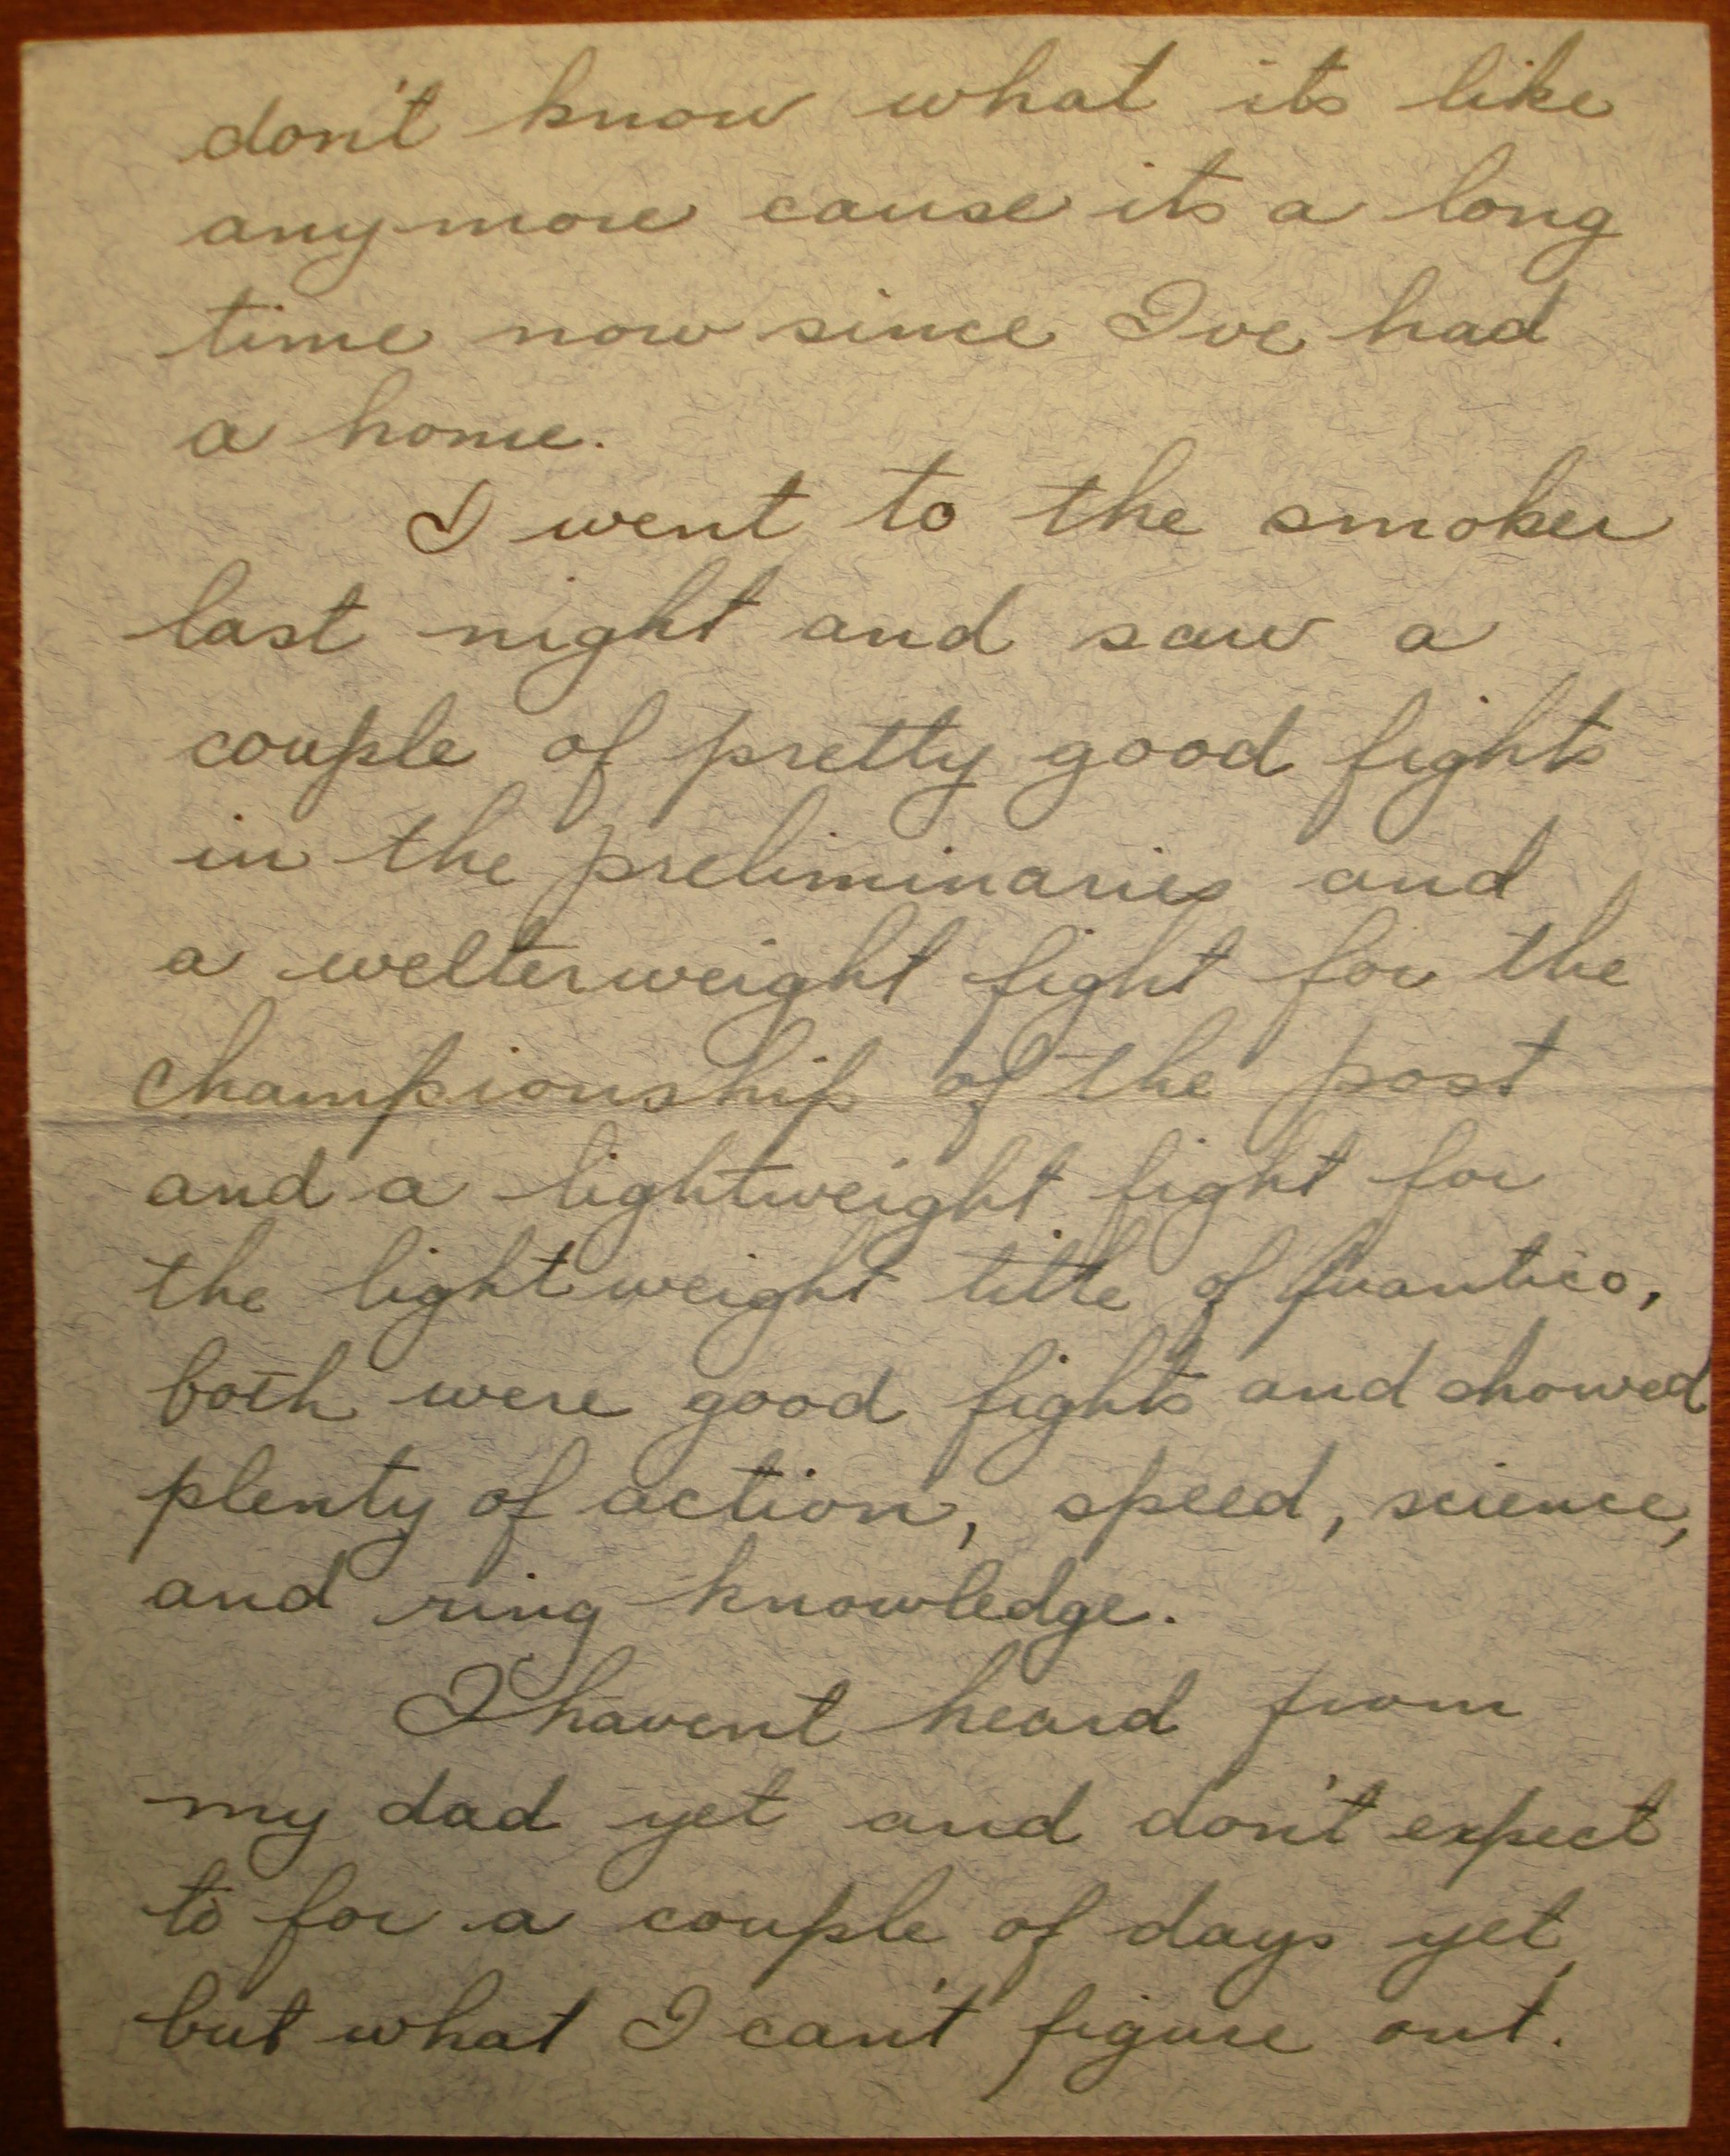 don't know what its like
anymore cause its a long
time now since I've had
a home.
I went to the smoker
last night and saw a
couple of pretty good fights
in the preliminaries and
a welterweight fight for the
championship of the post
and a lightweight fight for
the lightweight title of Quantico,
both were good fights and showed
plenty of action, speed, science,
and ring knowledge.
I havent heard from
my dad yet and don't expect
to for a couple of days yet
but what I can't figure out.